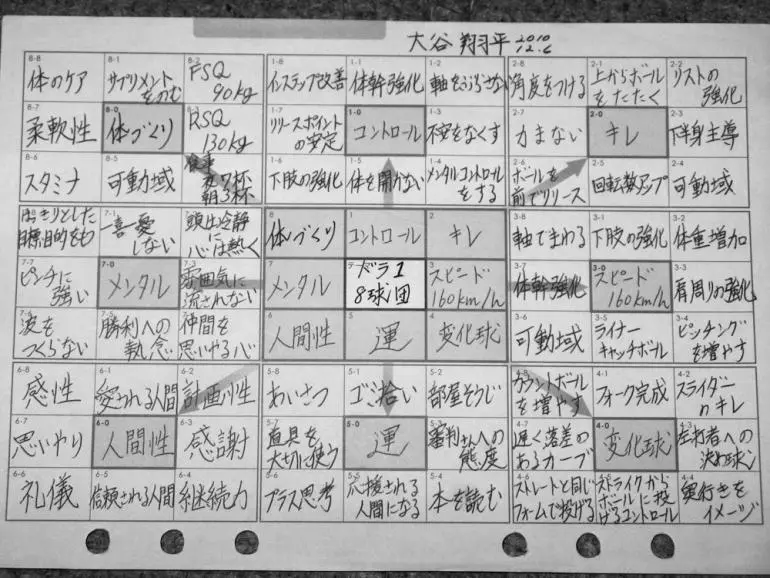 大谷 翔平 2010
12.6
8-8
体のケア
8-1
サプリメント
をのむ
8-2
FSQ
90kg
8-7
柔軟性
8-0
体づくり
8-3
RSQ
130kg
8-6
スタミナ
8-5
可動域
食事
夜7杯
朝3杯
1-8
インステップ改善
1-1
体幹強化
1-2
軸をぶらさない
1-7
リリースポイント
の安定
1-0
コントロール
1-3
不安をなくす
1-6
下肢の強化
1-5
体を開かない
1-4
メンタルコントロール
をする
2-8
角度をつける
2-1
上からボール
をたたく
2-2
リストの
強化
2-7
力まない
2-0
キレ
2-3
下半身主導
2-6
ボールを
前でリリース
2-5
回転数アップ
2-4
可動域
はっきりとした
目標、目的をもつ
7-1
一喜一憂
しない
頭は冷静に
心は熱く
7-7
ピンチに
強い
7-0
メンタル
7-3
雰囲気に
流されない
波を
つくらない
7-5
勝利への
執念
7-4
仲間を
思いやる心
8
体づくり
1
コントロール
2
キレ
7
メンタル
ドラ1
8球団
3
スピード
160km/h
6
人間性
5
運
4
変化球
3-8
軸でまわる
3-1
下肢の強化
3-2
体重増加
3-7
体幹強化
3-0
スピード
160km/h
3-3
肩周りの強化
3-6
可動域
3-5
ライナー
キャッチボール
3-4
ピッチング
を増やす
感性
6-1
愛される人間
6-2
計画性
6-7
思いやり
6-0
人間性
6-3
感謝
6-6
礼儀
6-5
信頼される人間
6-4
継続力
5-8
あいさつ
5-1
ゴミ拾い
5-2
部屋そうじ
5-7
道具を
大切に使う
5-0
運
5-3
審判さんへの
態度
5-6
プラス思考
5-5
応援される
人間になる
5-4
本を読む
4-8
カウントボール
を増やす
4-1
フォーク完成
4-2
スライダー
のキレ
遅く落差の
あるカーブ
4-0
変化球
4-3
左打者への
決め球
4-6
ストレートと同じ
フォームで投げる
ストライクから
ボールに投
げるコントロール
4-4
奥行きを
イメージ